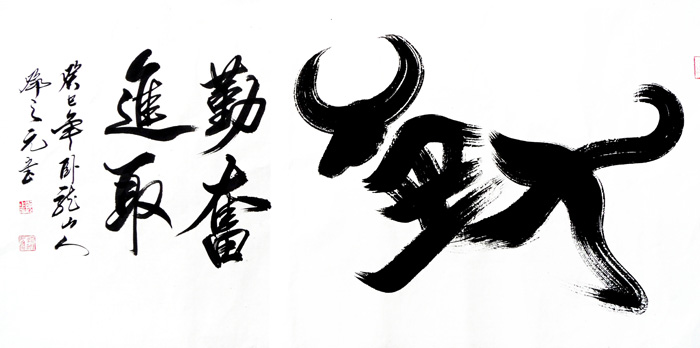 勤奮
進取
癸巳年卧龍山人
之元